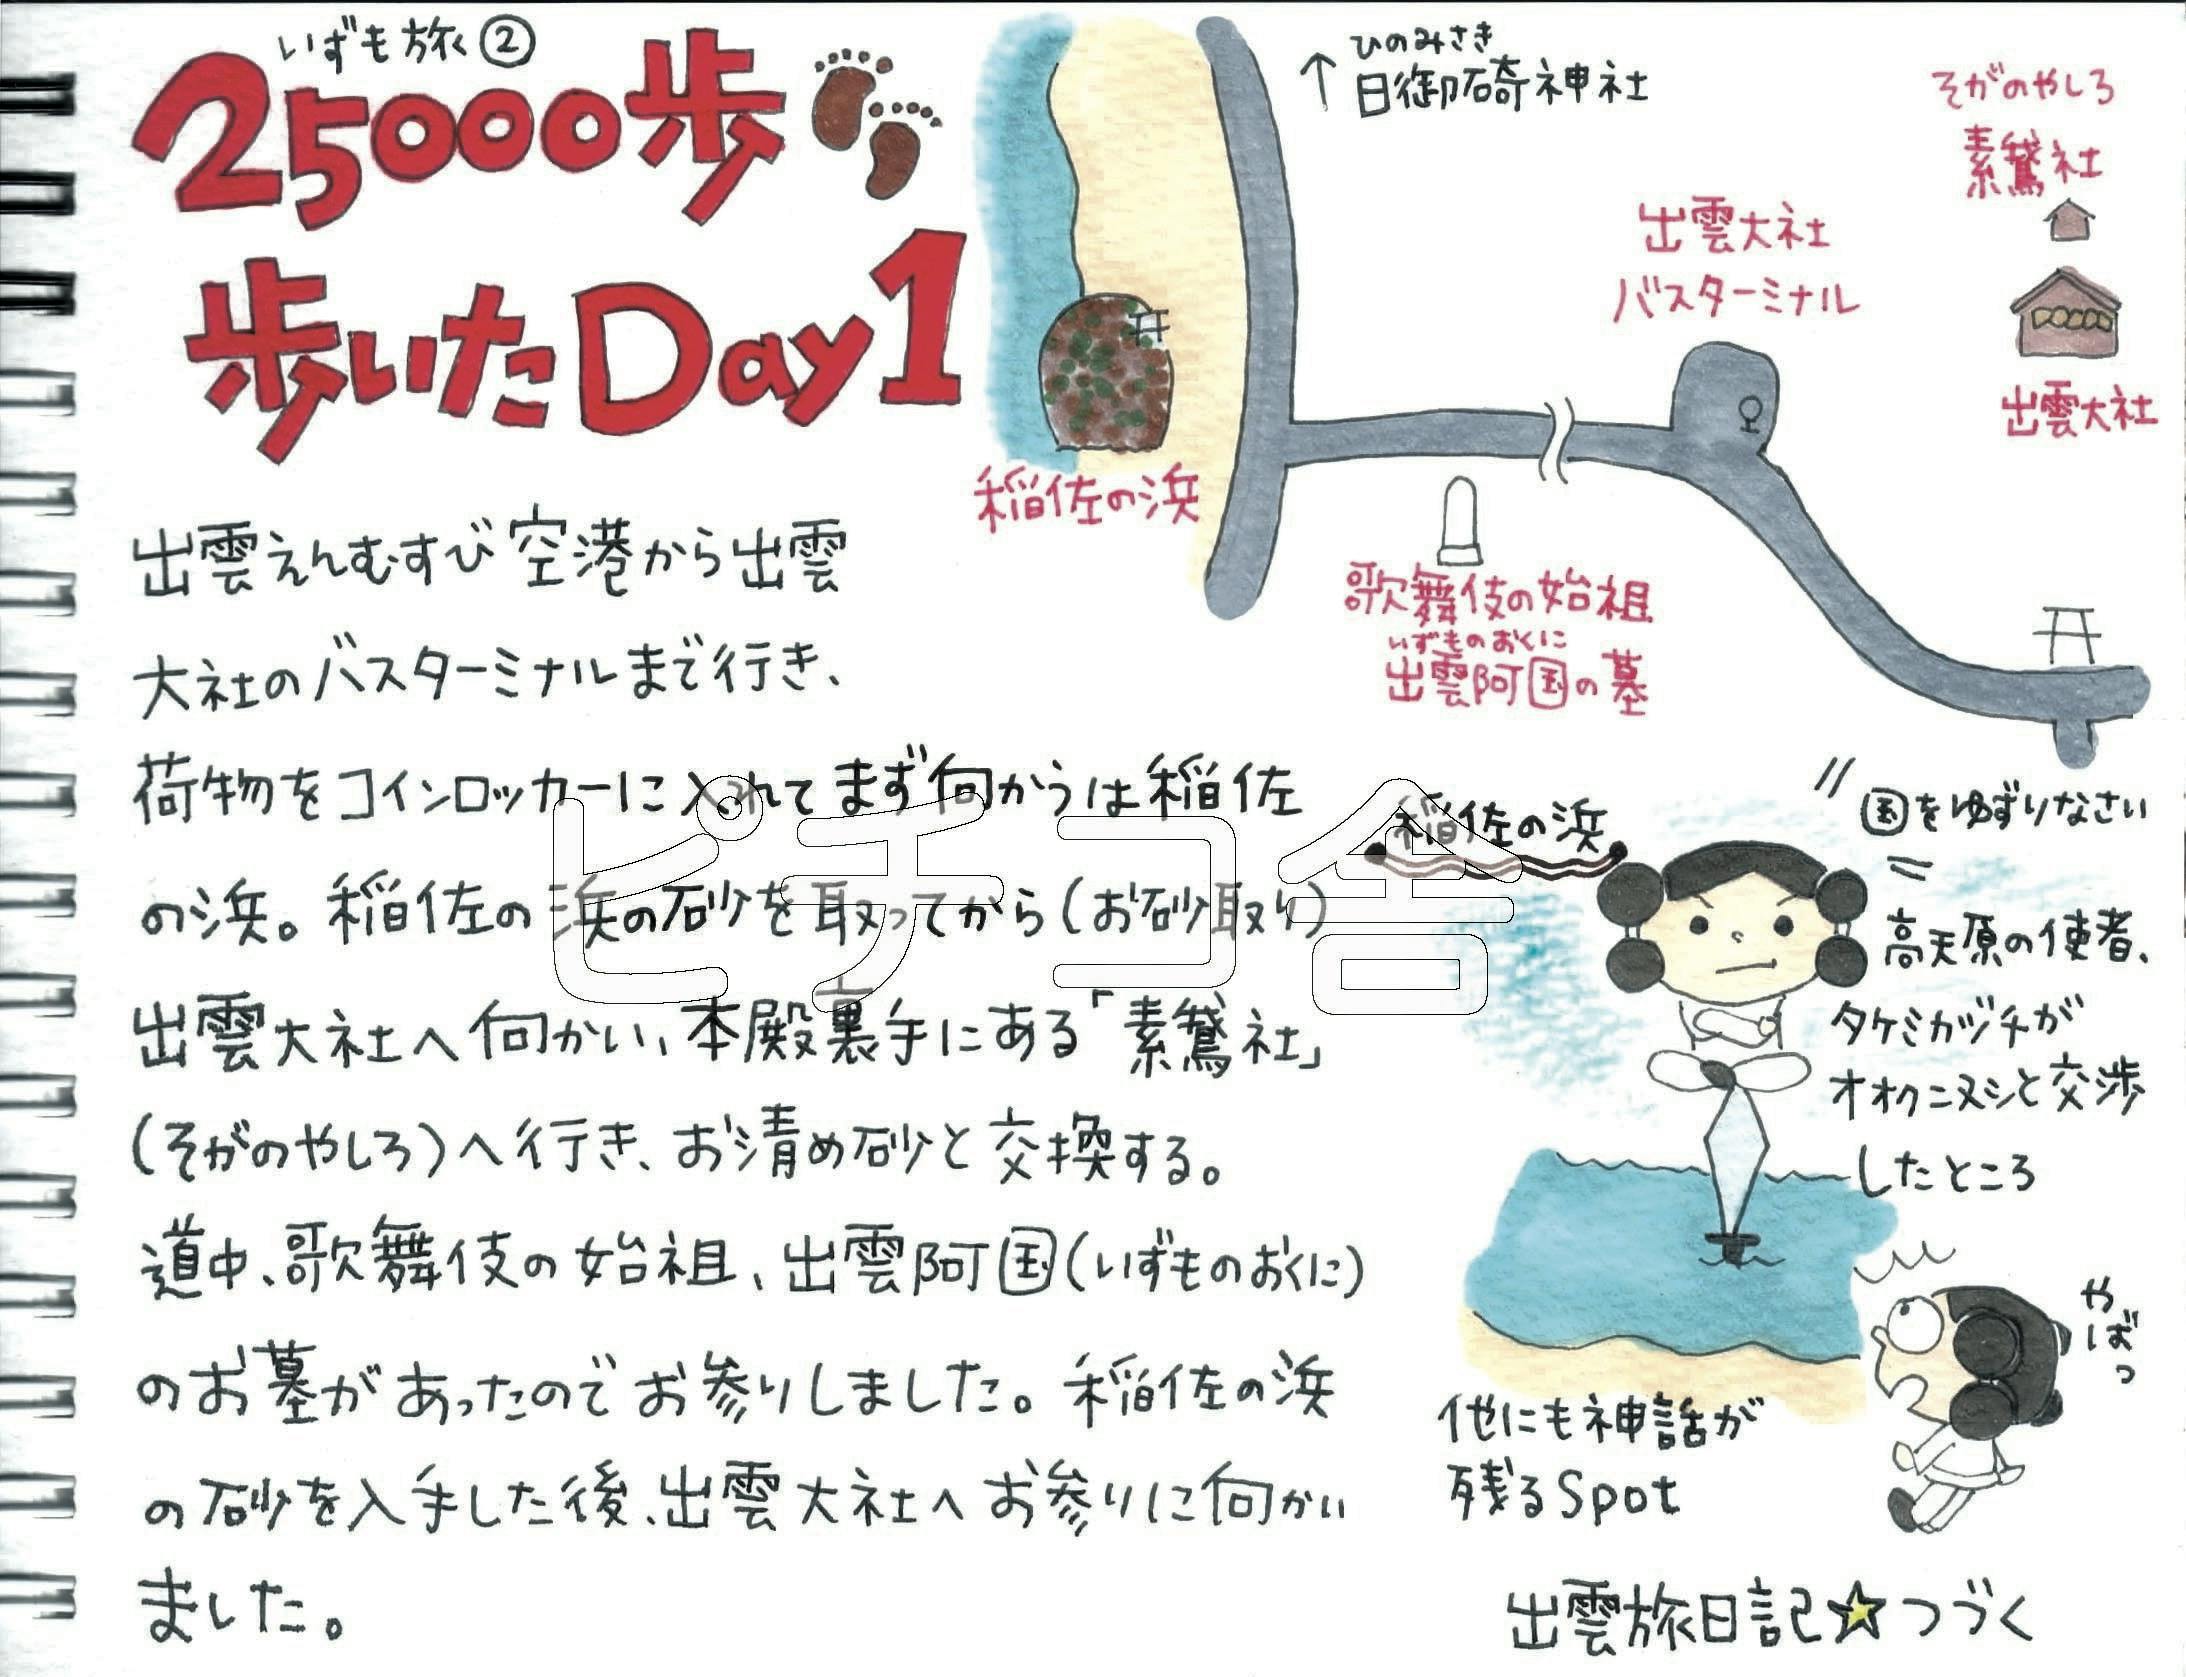 いずも旅②
25000歩
歩いたDay1
↑ひのみさき
日御碕神社
そがのやしろ
素鵞社
出雲大社
バスターミナル
出雲大社
稲佐の浜
歌舞伎の始祖
いずものおくに
出雲阿国の墓
出雲えんむすび空港から出雲
大社のバスターミナルまで行き、
荷物をコインロッカーに入れてまず向かうは稲佐
の浜。稲佐の浜の砂を取ってから(お砂取り)
出雲大社へ向かい、本殿裏手にある「素鵞社」
(そがのやしろ)へ行き、お清め砂と交換する。
道中、歌舞伎の始祖、出雲阿国(いずものおくに)
のお墓があったのでお参りしました。稲佐の浜
の砂を入手した後、出雲大社へお参りに向かい
ました。
ピチコ舎
稲佐の浜
国をゆずりなさい
高天原の使者、
タケミカヅチが
オオクニヌシと交渉
したところ
やばっ
他にも神話が
残るSpot
出雲旅日記☆つづく